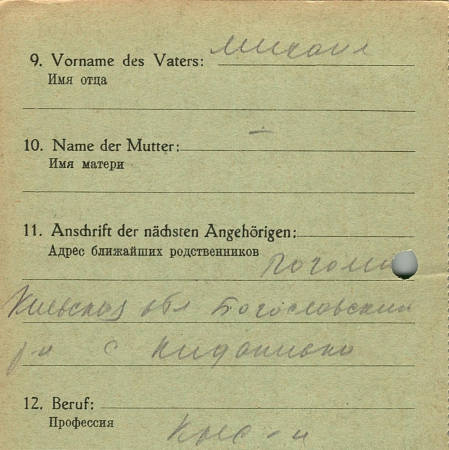 9. Vorname des Vaters: Михаил
Имя отца
10. Name der Mutter: —
Имя матери
11. Anschrift der nächsten Angehörigen:
Адрес ближайших родственников
Киевская обл Богословский
р-н с
12. Beruf:
Профессия
Крес-н